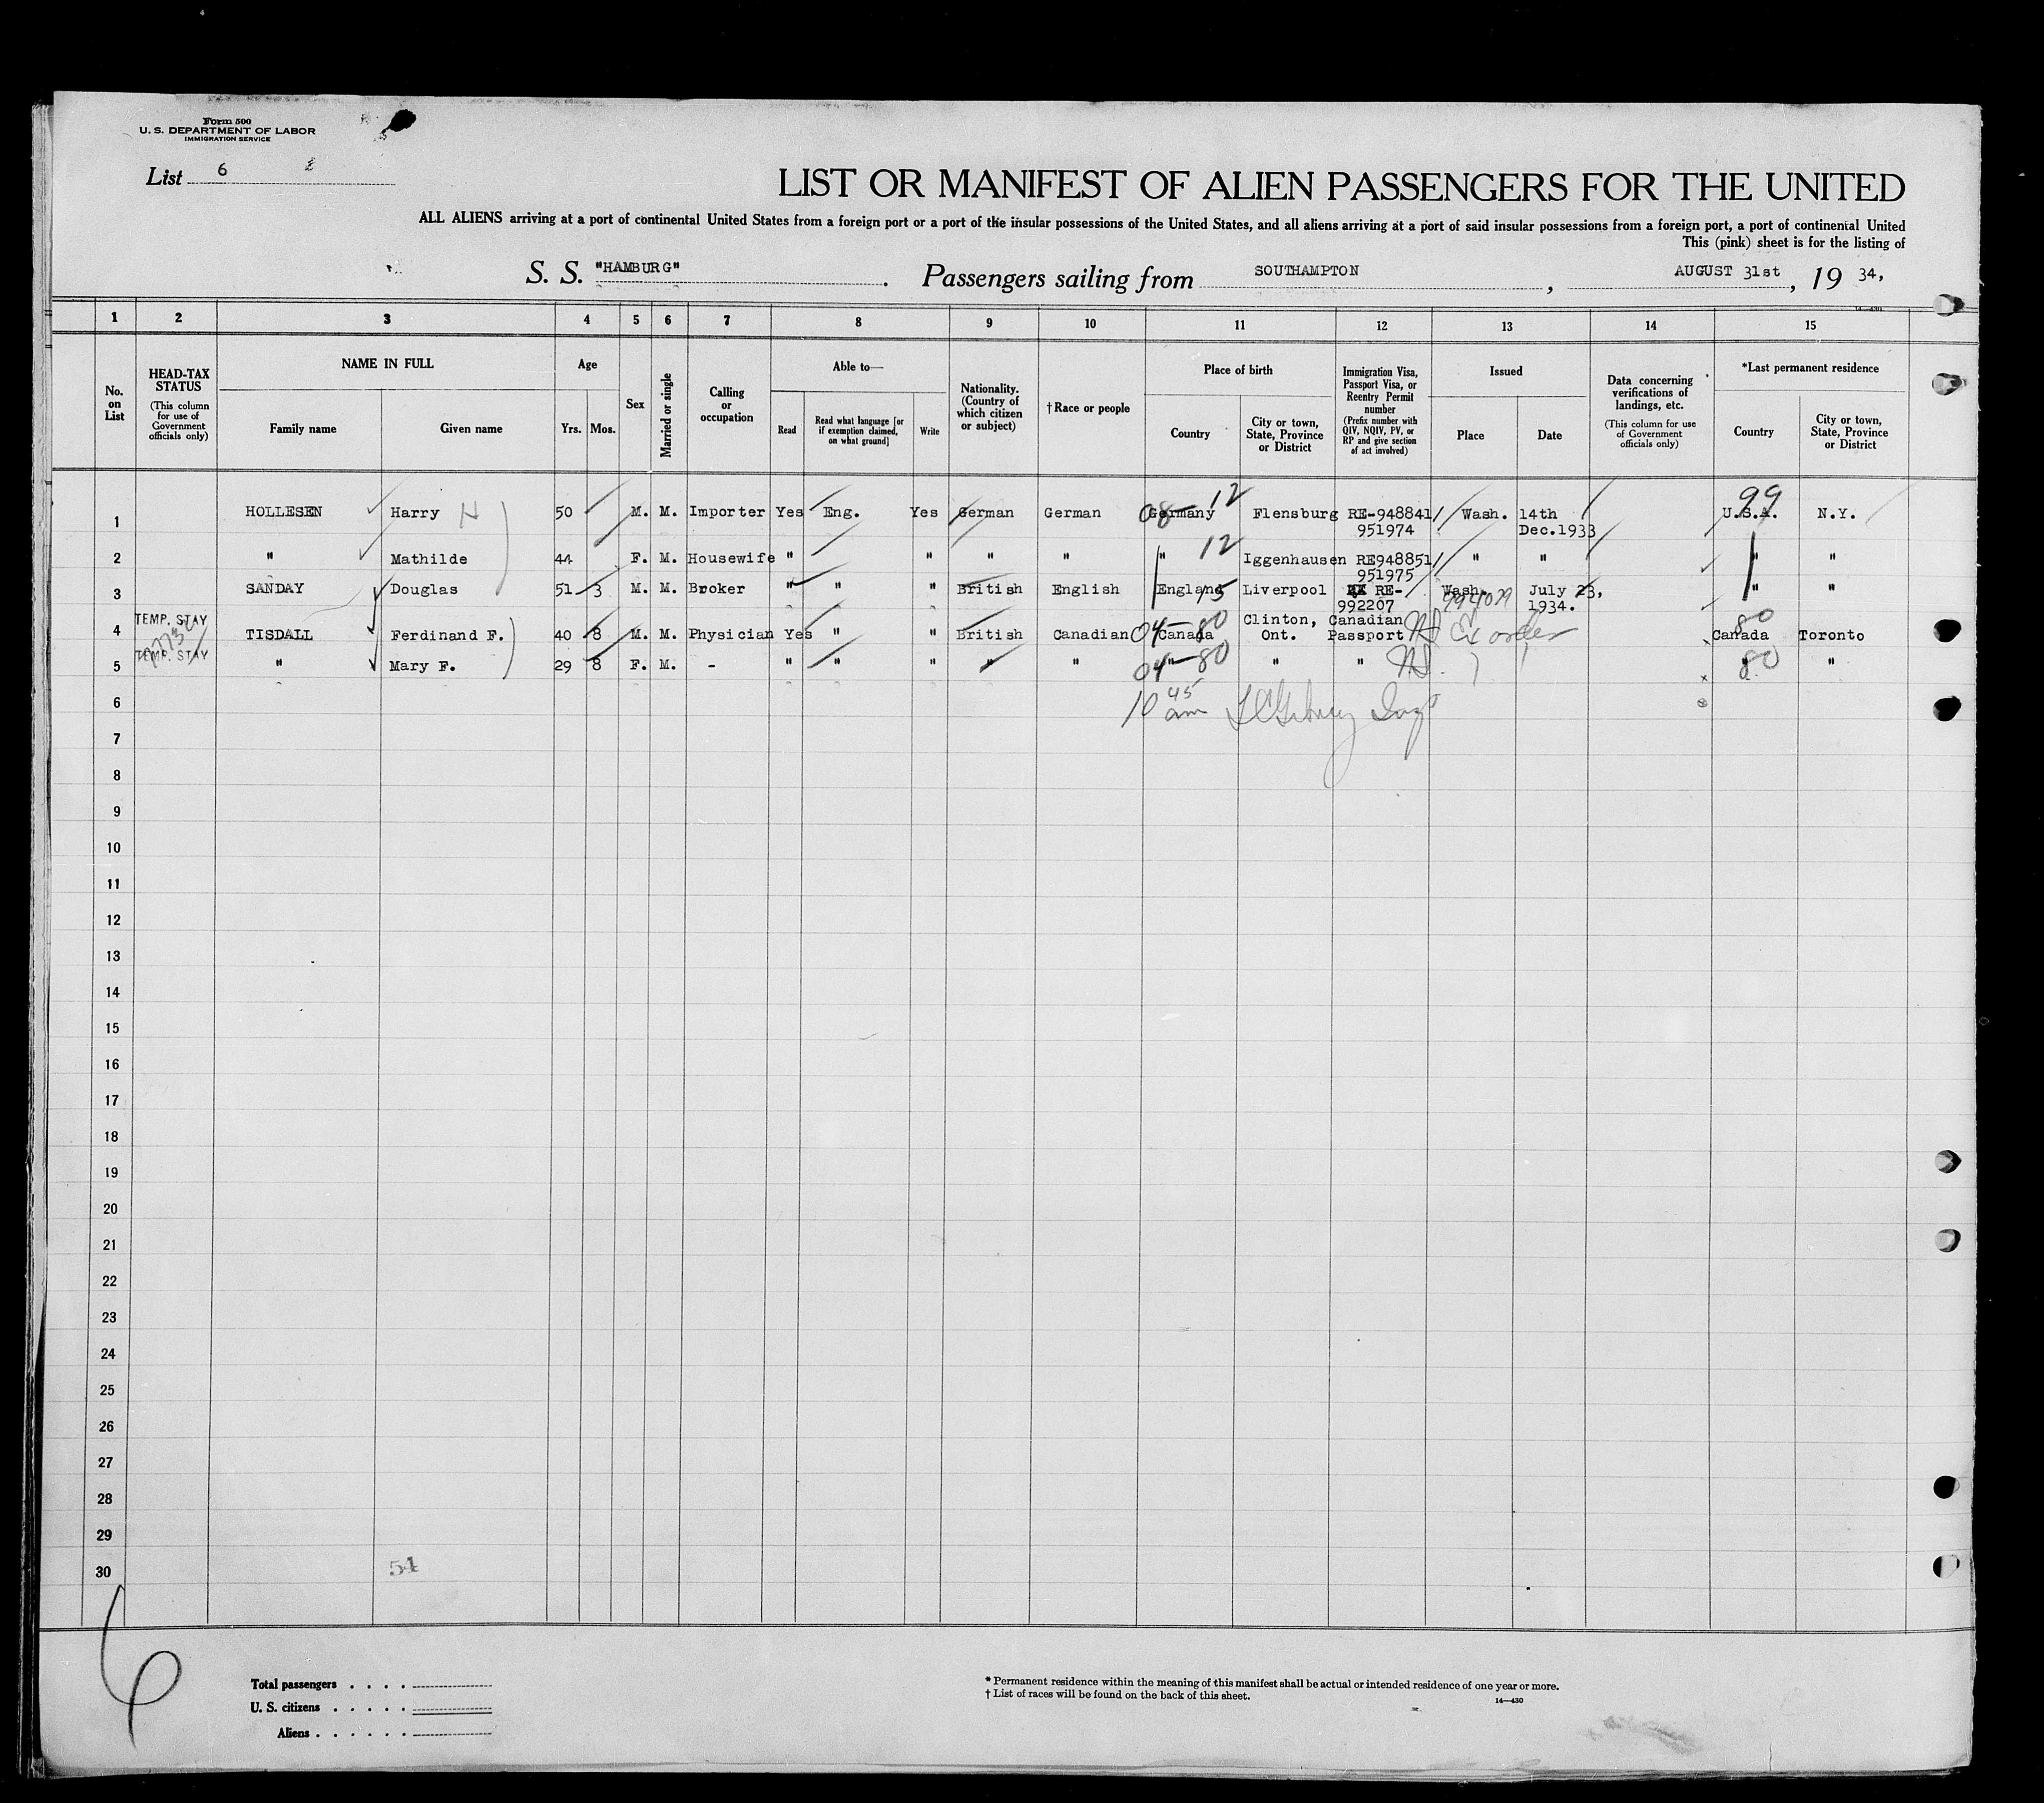 Form 500
U. S. DEPARTMENT OF LABOR
IMMIGRATION SERVICE
List 6
LIST OR MANIFEST OF ALIEN PASSENGERS FOR THE UNITED
ALL ALIENS arriving at a port of continental United States from a foreign port or a port of the insular possessions of the United States, and all aliens arriving at a port of said insular possessions from a foreign port, a port of continental United
This (pink) sheet is for the listing of
S. S. "HAMBURG" . Passengers sailing from SOUTHAMPTON , AUGUST 31st , 19 34,
1 2 3 4 5 6 7 8 9 10 11 12 13 14 15
No. on List
HEAD-TAX STATUS
(This column for use of Government officials only)
NAME IN FULL
Family name
Given name
Age
Yrs.
Mos.
Sex
Married or single
Calling or occupation
Able to—
Read
Read what language [or if exemption claimed, on what ground]
Write
Nationality. (Country of which citizen or subject)
†Race or people
Place of birth
Country
City or town, State, Province or District
Immigration Visa, Passport Visa, or Reentry Permit number
(Prefix number with QIV, NQIV, PV, or RP and give section of act involved)
Issued
Place
Date
Data concerning verifications of landings, etc.
(This column for use of Government officials only)
*Last permanent residence
Country
City or town, State, Province or District
1 HOLLESEN Harry H 50 M. M. Importer Yes Eng. Yes German German 08-12 Germany Flensburg RE-948841 951974 Wash. 14th Dec.1933 99 U.S.A. N.Y.
2 " Mathilde 44 F. M. Housewife " " " " " 12 Iggenhausen RE948851 951975 " " " "
3 SANDAY Douglas 51 3 M. M. Broker " " " British English England 15 Liverpool RE-992207 Wash. July 23, 1934. " "
4 TEMP. STAY TISDALL Ferdinand F. 40 8 M. M. Physician Yes " " British Canadian 04-80 Canada Clinton, Ont. Canadian Passport Ex order 80 Canada Toronto
5 TEMP. STAY " Mary F. 29 8 F. M. - " " " " " 04-80 " " " 80 " "
6 10 45 am
7
8
9
10
11
12
13
14
15
16
17
18
19
20
21
22
23
24
25
26
27
28
29
30
54
6
Total passengers . . . .
U. S. citizens . . . . .
Aliens . . . . . .
* Permanent residence within the meaning of this manifest shall be actual or intended residence of one year or more.
† List of races will be found on the back of this sheet.
14—430